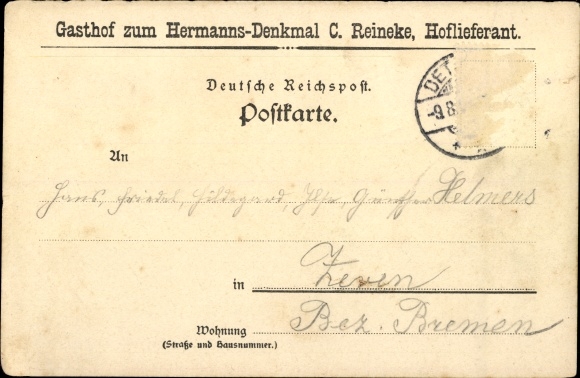 Gasthof zum Hermanns-Denkmal C. Reineke, Hoflieferant.
Deutsche Reichspost.
Postkarte.
DET
-9.8.
An
Hans, Friedel, Hildegard, Ilse Günther Helmers
in Zeven
Wohnung Bez. Bremen
(Straße und Hausnummer.)